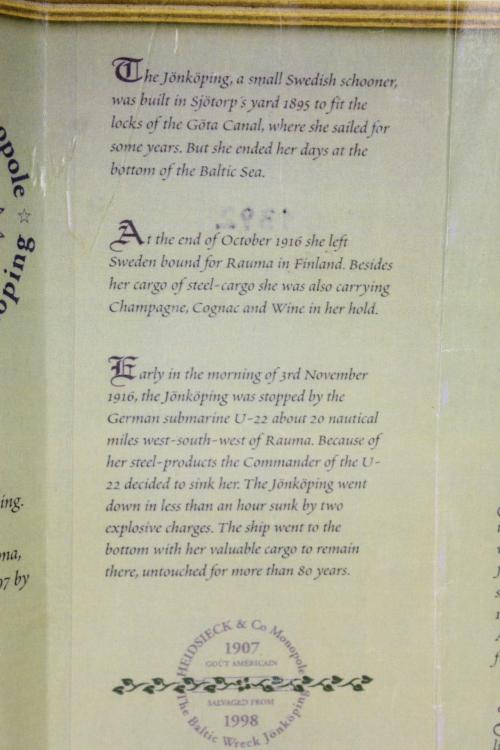 The Jönköping, a small Swedish schooner,
was built in Sjötorp's yard 1895 to fit the
locks of the Göta Canal, where she sailed for
some years. But she ended her days at the
bottom of the Baltic Sea.
At the end of October 1916 she left
Sweden bound for Rauma in Finland. Besides
her cargo of steel-cargo she was also carrying
Champagne, Cognac and Wine in her hold.
Early in the morning of 3rd November
1916, the Jönköping was stopped by the
German submarine U-22 about 20 nautical
miles west-south-west of Rauma. Because of
her steel-products the Commander of the U-
22 decided to sink her. The Jönköping went
down in less than an hour sunk by two
explosive charges. The ship went to the
bottom with her valuable cargo to remain
there, untouched for more than 80 years.
HEIDSIECK & Co Monopole
1907
GOÛT AMÉRICAIN
SALVAGED FROM
1998
The Baltic Wreck Jönköping
opole ☆
oping
ing.
ona,
07 by